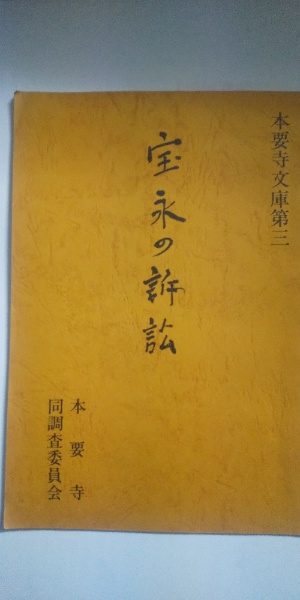 本要寺文庫第三
宝永の訴訟
本要寺
同調査委員会